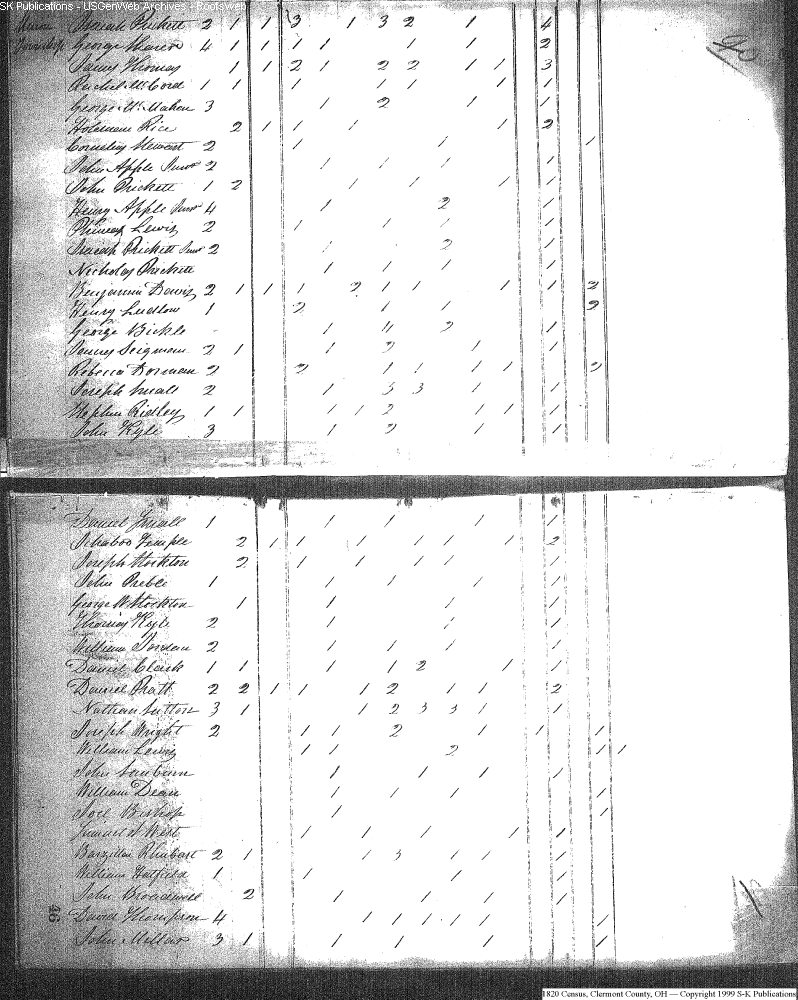 SK Publications - USGenWeb Archives - Rootsweb
Union Isaiah Prickett 2 1 1 3 1 3 2 1 4
Township George 4 1 1 1 1 1 1 2
James Thomas 1 1 2 1 2 2 1 1 3
Rachel McCord 1 1 1 1 1 1 1
George McMahan 3 1 2 1 1
Holeman Rice 2 1 1 1 1 2
Cornelius Stewart 2 1 1 1
John Apple Junr 2 1 1 1 1
John Prickett 1 2 1 1 1 1
Henry Apple Junr 4 1 2 1
Phineas Lewis 2 1 1 1 1
Isaiah Prickett Junr 2 1 2 1
Nicholas Prickett 1 1 1 1
Benjamin Davis 2 1 1 1 2 1 1 1 1 2
Henry Ludlow 1 2 1 1 2
George Bickle 1 4 2 1
James Seigman 2 1 1 2 1 1
Rebecca Dorman 2 2 1 1 1 1 2
Joseph Small 2 1 3 3 1 1
Stephen Ridley 1 1 1 1 2 1 1 1
John Kyle 3 1 2 1 1
Daniel Small 1 1 1 1 1
Ichabod Temple 2 1 1 1 1 1 1 2
Joseph Stockton 2 1 1 1 1 1
John Preble 1 1 1 1 1
George W Stockton 1 1 1 1
Thomas Kyle 2 1 1 1
William Jordan 2 1 1 1 1
Daniel Clark 1 1 1 1 2 1 1
Daniel Pratt 2 2 1 1 1 2 1 1 2
Nathan Sutton 3 1 1 2 3 3 1 1
Joseph Wright 2 1 1 2 1 1 1
William Lewis 1 1 2 1 1
John Sanburn 1 1 1 1
William Dean 1 1 1 1 1
Joel Bishop 1 1
Samuel S West 1 1 1 1 1
Barzillai Rhubart 2 1 1 3 1 1 1
William Hatfield 1 1 1 1
John Broadwell 2 1 1 1 1
David Thompson 4 1 1 1 1 1 1
John Millar 3 1 1 1 1 1
46
1820 Census, Clermont County, OH — Copyright 1999 S-K Publications